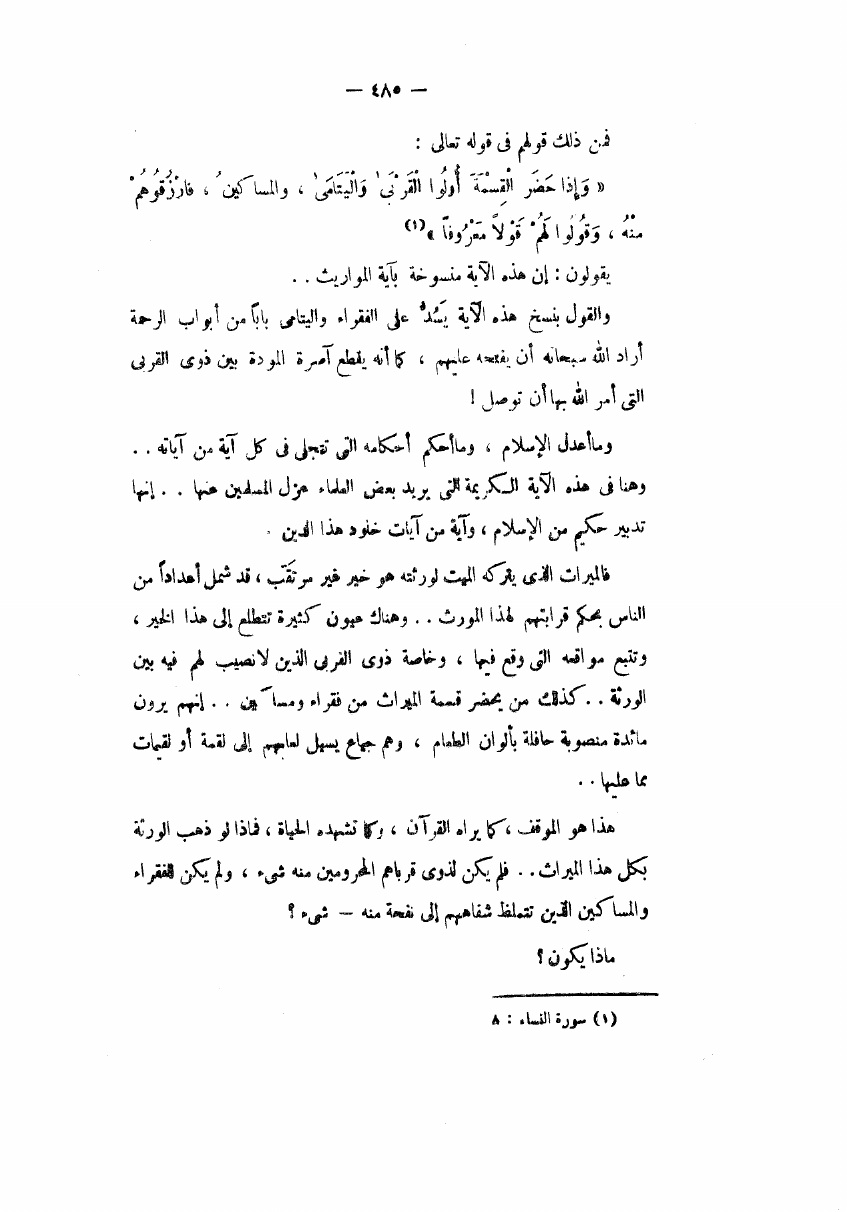 — ٤٨٥ —
فمن ذلك قولهم فى قوله تعالى :
« وَإِذا حَضَر الْقِسْمَةَ أُولُوا الْقُرْبَىٰ وَالْيَتَامَىٰ ، والمساكينُ ، فارْزُقوهُمْ
مِنْهُ ، وَقُولُوا لَهُمْ قَوْلاً مَعْرُوفاً »(١)
يقولون : إن هذه الآية منسوخة بآية المواريث . .
والقول بنسخ هذه الآية يَسُدّ على الفقراء واليتامى باباً من أبواب الرحمة
أراد الله سبحانه أن يفتحه عليهم ، كما أنه يقطع آصرة المودة بين ذوى القربى
التى أمر الله بها أن توصل !
وما أعدل الإسلام ، وما أحكم أحكامه التى تتجلى فى كل آية من آياته . .
وهنا فى هذه الآية الكريمة التى يريد بعض العلماء عزل المسلمين عنها . . إنها
تدبير حكيم من الإسلام ، وآية من آيات خلود هذا الدين .
فالميراث الذى يتركه الميت لورثته هو خير غير مرتقَب ، قد شمل أعداداً من
الناس بحكم قرابتهم لهذا المورث . . وهناك عيون كثيرة تتطلع إلى هذا الخير ،
وتتبع مواقعه التى وقع فيها ، وخاصة ذوى القربى الذين لا نصيب لهم فيه بين
الورثة . . كذلك من يحضر قسمة الميراث من فقراء ومساكين . . إنهم يرون
مائدة منصوبة حافلة بألوان الطعام ، وهم جياع يسيل لعابهم إلى لقمة أو لقيمات
مما عليها . .
هذا هو الموقف ، كما يراه القرآن ، وكما تشهده الحياة ، فماذا لو ذهب الورثة
بكل هذا الميراث . . فلم يكن لذوى قرباهم المحرومين منه شىء ، ولم يكن للفقراء
والمساكين الذين تتملظ شفاههم إلى نفحة منه — شىء ؟
ماذا يكون ؟
(١) سورة النساء : ٨